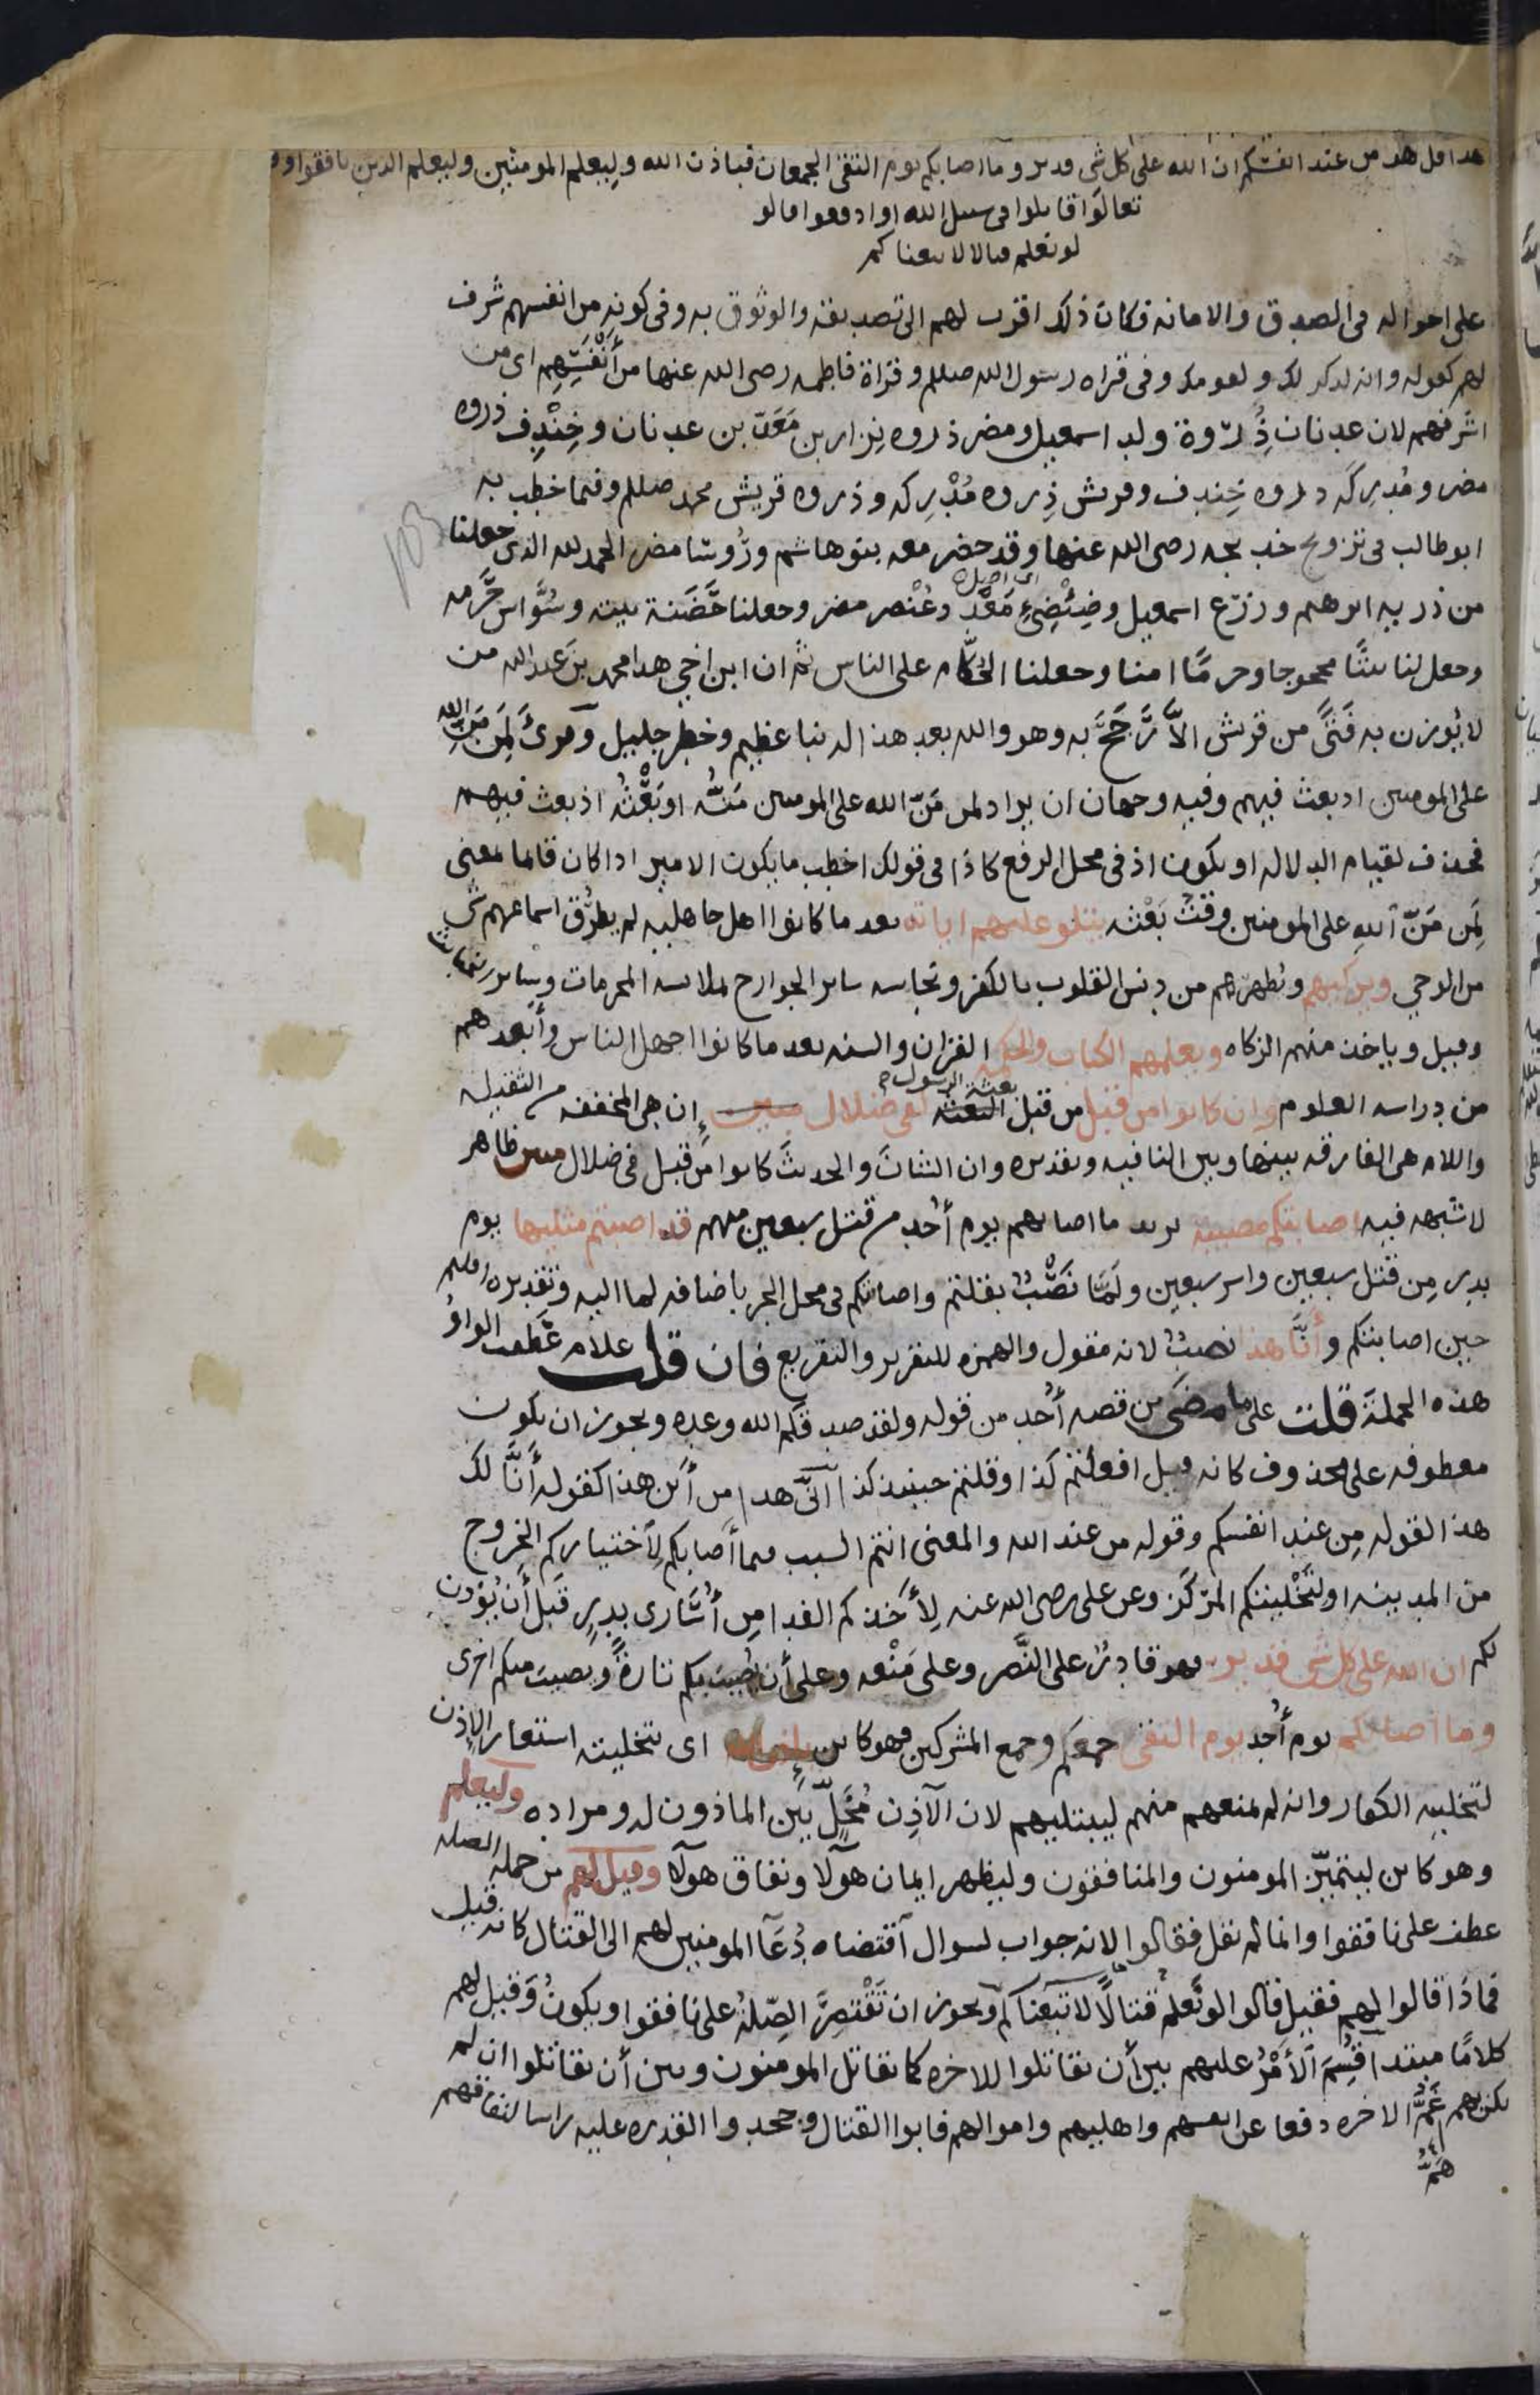 هذا قل هو من عند انفسكم ان الله على كل شى قدير وما اصابكم يوم التقى الجمعان فباذن الله وليعلم المومنين وليعلم الذين نافقوا وو
تعالوا قاتلوا فى سبيل الله او ادفعوا قالو
لو نعلم قتالا لاتبعناكم
على احواله فى الصدق والامانه فكان ذلك اقرب لهم الى تصديقه والوثوق به وفى كونه من انفسهم شرف
لهم كقوله وانه لذكر لك ولقومك وفى قراه رسول الله صلم وقراة فاطمه رضى الله عنها من أَنْفَسِهِم اى من
اشرفهم لان عدنان ذِرْوة ولد اسمعيل ومضر ذروه نِزار بن مَعَدّ بن عدنان وخِنْدِف ذروه
مضر ومُدْرِكَه ذروه خِندف وقريش ذِروه مُدْرِكه وذروه قريش محمد صللم وفيما خطب به
ابو طالب فى تزوج خديجه رضى الله عنها وقد حضر معه بنو هاشم ورُوسَا مضر الحمد لله الذى جعلنا
من ذريه ابرهيم وزرْع اسمعيل وضِئْضِئِ مَعَدّ وعُنْصر مضر وجعلنا حَضَنة بيته وسُوَّاس حَرَمه
وجعل لنا بيتًا محجوجا وحرمًا امنا وجعلنا الحُكّام على الناس ثم ان ابن اخى هذا محمد بن عبد الله من
لا يُوزن به فَتًى من قريش الاَّ رَجَحَ به وهو والله بعد هذا له نبا عظيم وخطر جليل وقرئ لَمِن مَنِّ الله
على المومنين اذ بعث فيهم وفيه وجهان ان يراد لمن مَنّ الله على المومنين مَنُّه او بَعْثُه اذ بعث فيهم
فحذف لقيام الدلاله او يكون اذ فى محل الرفع كاذا فى قولك اخطب ما يكون الامير اذا كان قائما معنى
لَمِن مَنّ اللهِ على المومنين وقتُ بَعْثه يتلو عليهم اياته بعد ما كانوا اهل جاهليه لم يطرُق اسماعهم شى
من الوحى ويزكيهم ويُطهرهم من دنس القلوب بالكفر ونجاسه ساير الجوارح بملابسه المحرمات وساير الخبائث
وقيل وياخذ منهم الزكاه ويعلمهم الكتاب والحكمه القران والسنه بعد ما كانوا اجهل الناس وأبعدهم
من دراسه العلوم وان كانوا من قبل من قبل بعثة الرسول لفى ضلال مبين إن هى المخففه من الثقيله
واللام هى الفارقه بينها وبين النافيه وتقديره وان الشان والحديث كانوا من قبل فى ضلال مبين ظاهر
لا شبهه فيه اصابتكم مصيبة يريد ما اصابهم يوم أُحد من قتل سبعين منهم قد اصبتم مثليها يوم
بدر مِن قتل سبعين واسر سبعين ولَمَّا نَصْبٌ بقلتم واصابتكم فى محل الجر باضافه لما اليه وتقديره اقلتم
حين اصابتكم وأنَّا هذا نصبٌ لانه مقول والهمزه للتقرير والتقريع فان قلت علام عَطَفت الواوُ
هذه الجملة قلت على ما مضى من قصه أُحد من قوله ولقد صدقكم الله وعده ويجوز ان يكون
معطوفه على محذوف كانه قيل افعلتم كذا وقلتم حينيذ كذا أنّى هذا من أين هذا كقوله أَنَّا لك
هذا لقوله مِن عند انفسكم وقوله من عند الله والمعنى انتم السبب مما أصابكم لِاختياركم الخروج
من المدينه او لتخْليتكم المرْكَز وعن على رضى الله عنه لِأخذكم الفدا من أُسَارى بدرٍ قبل أن يُؤذن
لكم ان الله على كل شى قدير فهو قادرٌ على النَّصر وعلى مَنْعه وعلى أن يصيب بكم تارةً ويصيب منكم اخرى
وما اصابكم يوم أُحد يوم التقى جمعكم وجمع المشركين فهو كاين باذن الله اى بتخليته استعار الاِذن
لتخليه الكفار وانه لم يمنعهم منهم ليبتليهم لان الآذِن مُخَلٍّ بَين الماذون له ومراده وليعلم
وهو كاين ليتميّز المومنون والمنافقون وليظهر ايمان هولا ونفاق هولا وقيل لهم من جمله الصله
عطف على نافقوا وانما لم يقل فقالوا لانه جواب لسوال اقتضاه دُعَا المومنين لهم الى القتال كانه قيل
فماذا قالوا لهم فقيل قالوا لو نَعلم قتالاً لا تبعناكم ويجوز ان تَقْتصِرَ الصِّلةُ على نافقوا ويكونُ وَقيل لهم
كلامًا مبتدا قُسِمَ الأمْرُ عليهم بين أن يقاتلوا للاخره كما يقاتل المومنون وبين أن يقاتلوا ان لم
يكن بهم غَمُّ الاخره دفعا عن انفسهم واهليهم واموالهم فابوا القتال وجحدوا القدره عليه راسا لنفاقهم
هَمُّ